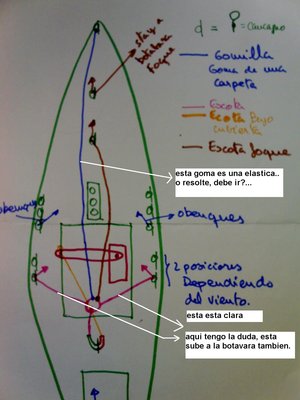 stay a
botabara
foque
d = = Cancamo
Gomilla
Goma de una
carpeta
Escota
Ecota Bajo
cubierta
Escota foque
esta goma es una elastica..
o resolte, debe ir?...
obenques
obenques
2 posiciones
Dependiendo
del viento.
esta esta clara
aqui tengo la duda, esta
sube a la botavara tambien.